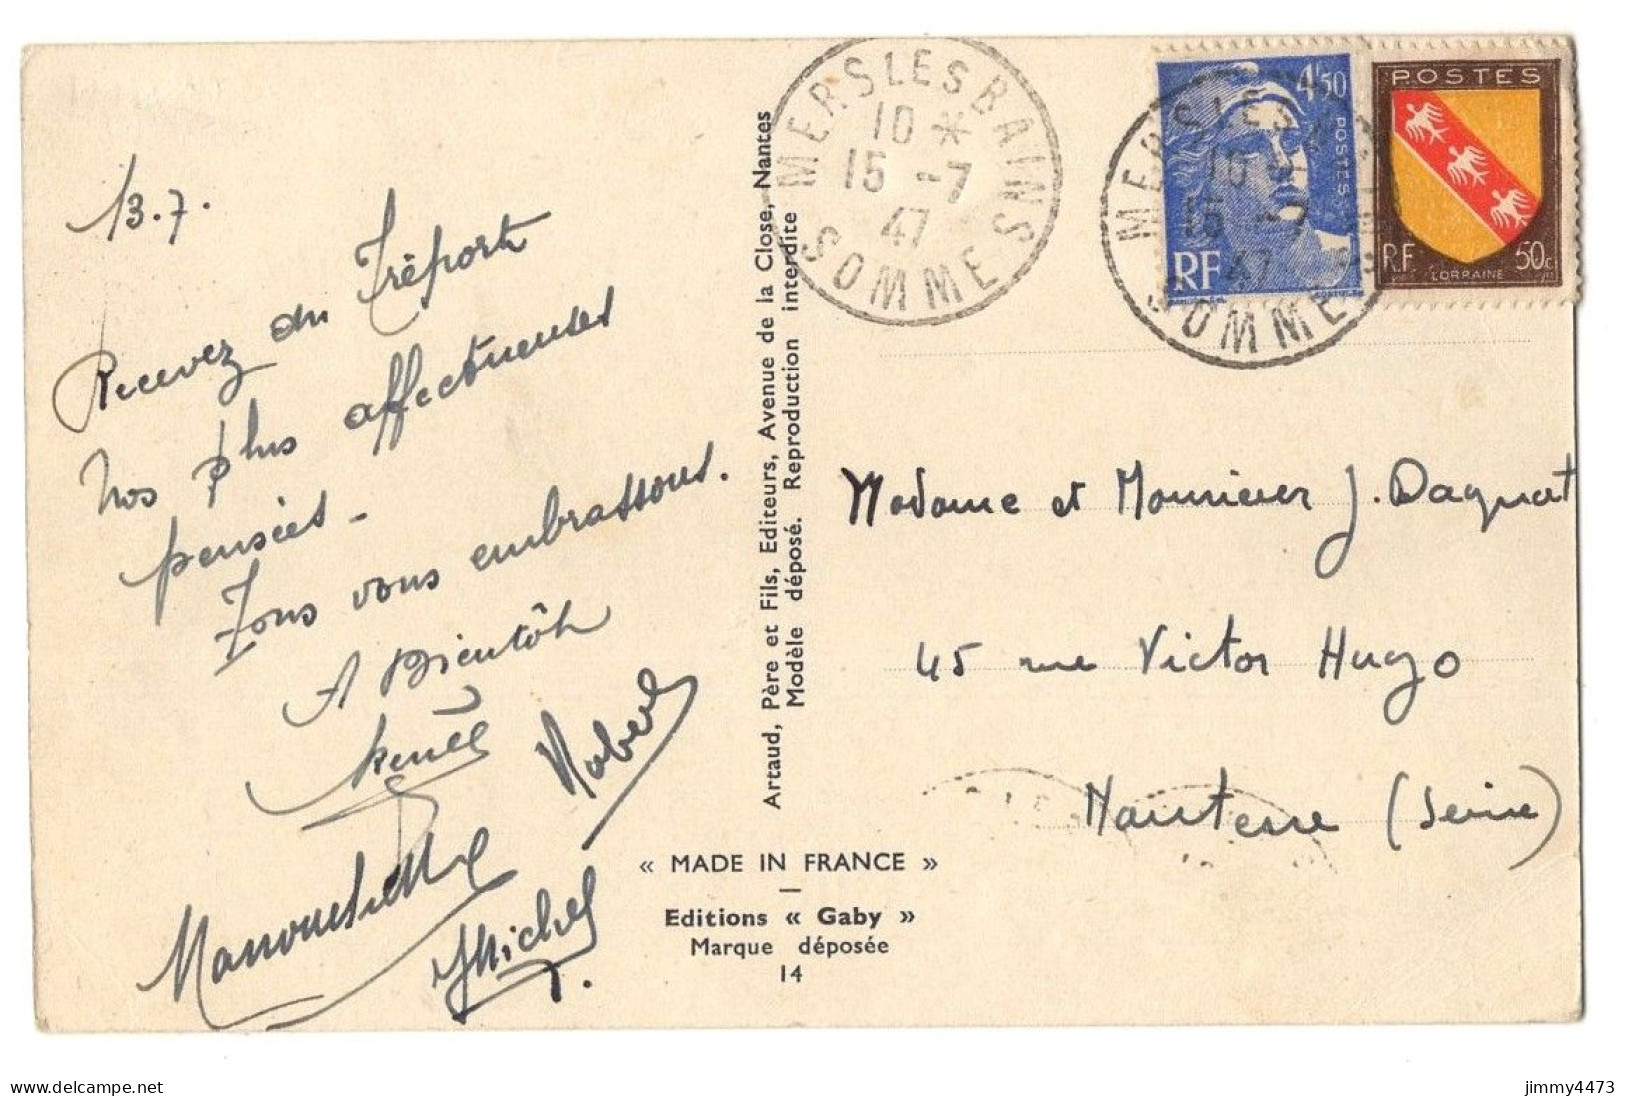 13.7.
Recevez du Tréport
nos plus affectueuses
pensées -
Tous vous embrassons.
A Bientôt
Renée
Robert
Manouchette
Michel
Artaud, Père et Fils, Editeurs, Avenue de la Close, Nantes
Modèle déposé. Reproduction interdite
« MADE IN FRANCE »
Editions « Gaby »
Marque déposée
14
MERS LES BAINS
10 *
15 -7
47
SOMME
4f50
POSTES
RF
MERS LES BAINS
10 *
15 -7
47
SOMME
POSTES
RF
50c
LORRAINE
Madame et Monsieur J. Daguet
45 rue Victor Hugo
Nanterre (Seine)
jimmy4473
www.delcampe.net